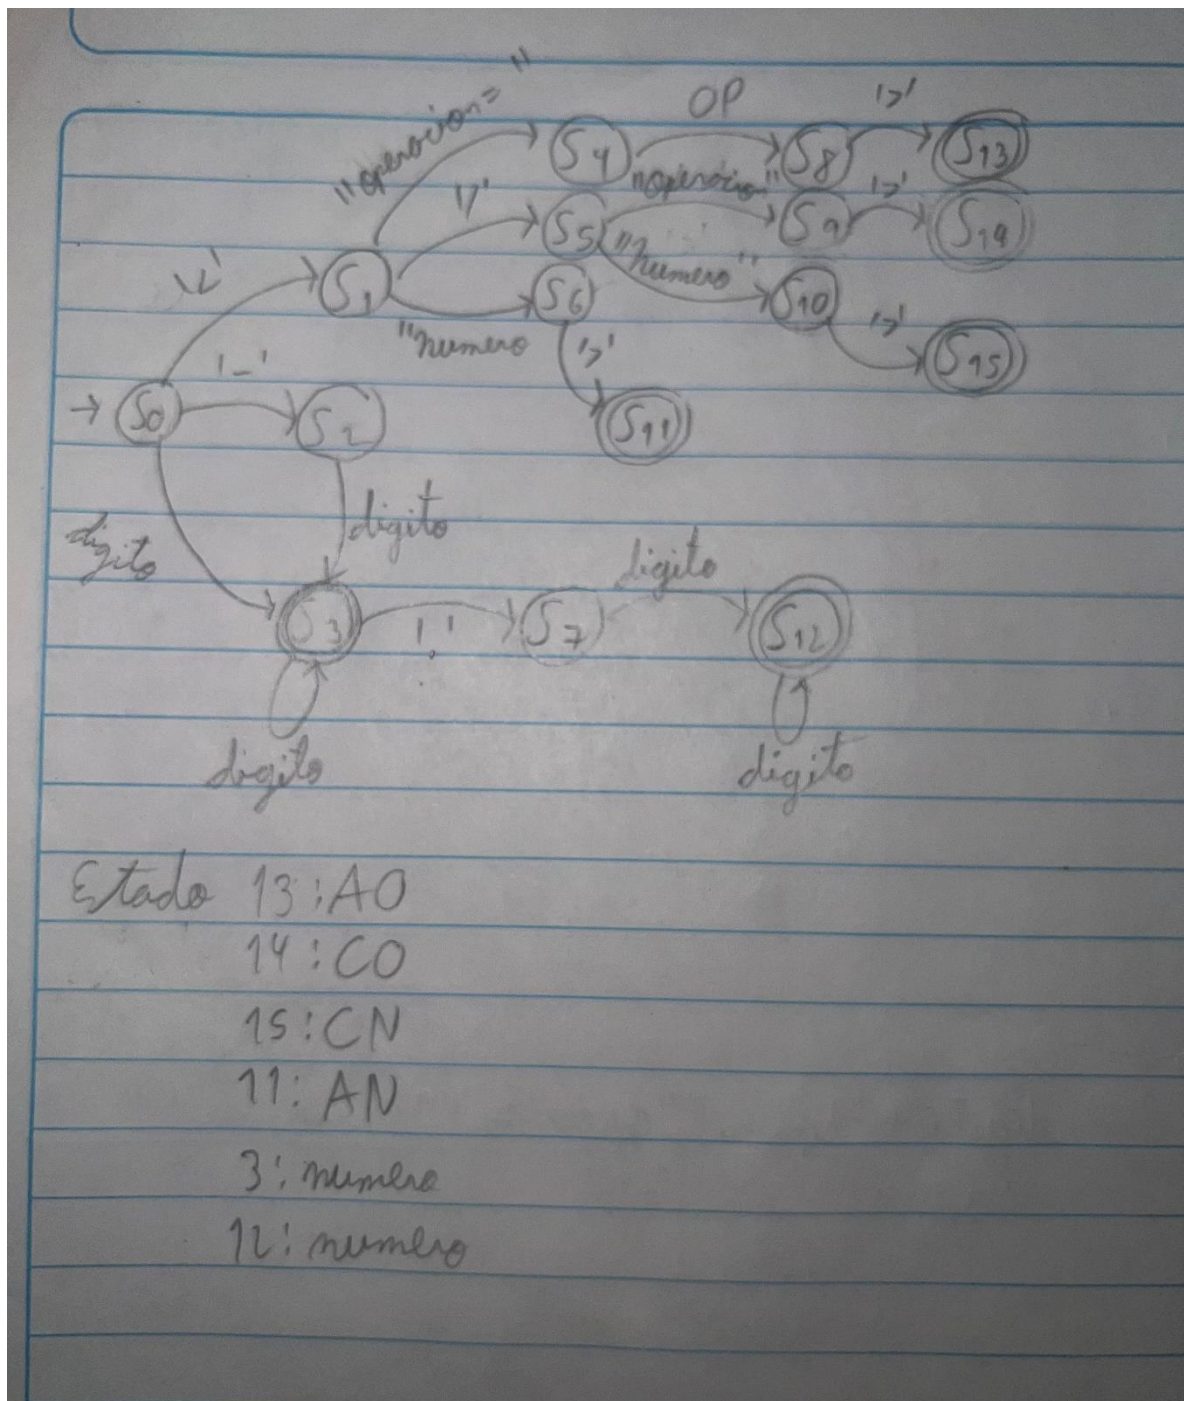 "operacion="
OP
'>'
S4
S8
S13
'/'
"operacion"
'>'
S5
S9
S14
'<'
S1
"Numero"
S6
S10
'>'
"numero
'>'
S15
'-'
→ S0
S2
S11
digito
digito
digito
S3
'.'
S7
S12
digito
digito
Estado 13:AO
14:CO
15:CN
11:AN
3:numero
12:numero